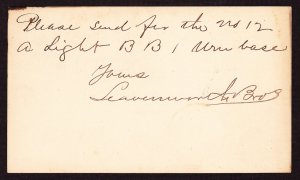 Please send for the No 12
A Light B B 1 Urn base
Yours
Leavenworth Bros